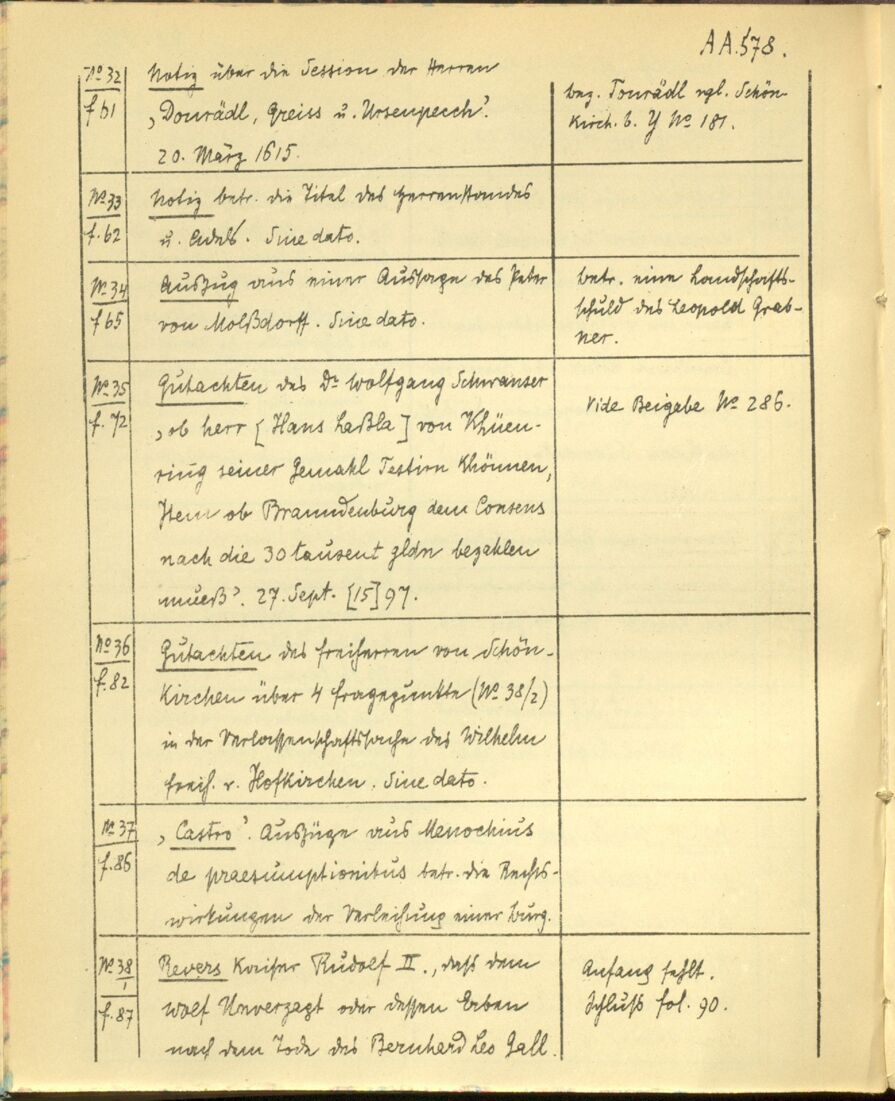 AA.578.
No 32
f 61
Notiz über die Session der Herren
„Donrädl, Greiss u. Ursenpeckh".
20. März 1615.
bez. Tonrädl vgl. Schön-
kirch. b. Y No 181.
No 33
f. 62
Notiz betr. die Titel des Herrenstandes
u. Adels. Sine dato.
No 34
f 65
Auszug aus einer Aussage des Peter
von Molßdorff. Sine dato.
betr. eine Landschafts-
schuld des Leopold Grab-
ner.
No 35
f. 72
Gutachten des Dr Wolfgang Schwanser
„ob herr [Hans Laßla] von Khüen-
ring seiner Gemahl Testirn khönnen,
Item ob Branndenburg dem Consens
nach die 30 tausent gldn bezahlen
mueß". 27. Sept. [15]97.
Vide Beigabe No 286.
No 36
f. 82
Gutachten des Freiherren von Schön-
kirchen über 4 Fragepunkte (No 38/2)
in der Verlassenschaftssache des Wilhelm
Freih. v. Hofkirchen. Sine dato.
No 37
f. 86
„Castro". Auszüge aus Menochius
de praesumptionibus betr. die Rechts-
wirkungen der Verleihung einer Burg.
No 38/1
f. 87
Revers Kaiser Rudolf II., dass dem
Wolf Unverzagt oder dessen Erben
nach dem Tode des Bernhard Leo Gall
Anfang fehlt.
Schluss fol. 90.